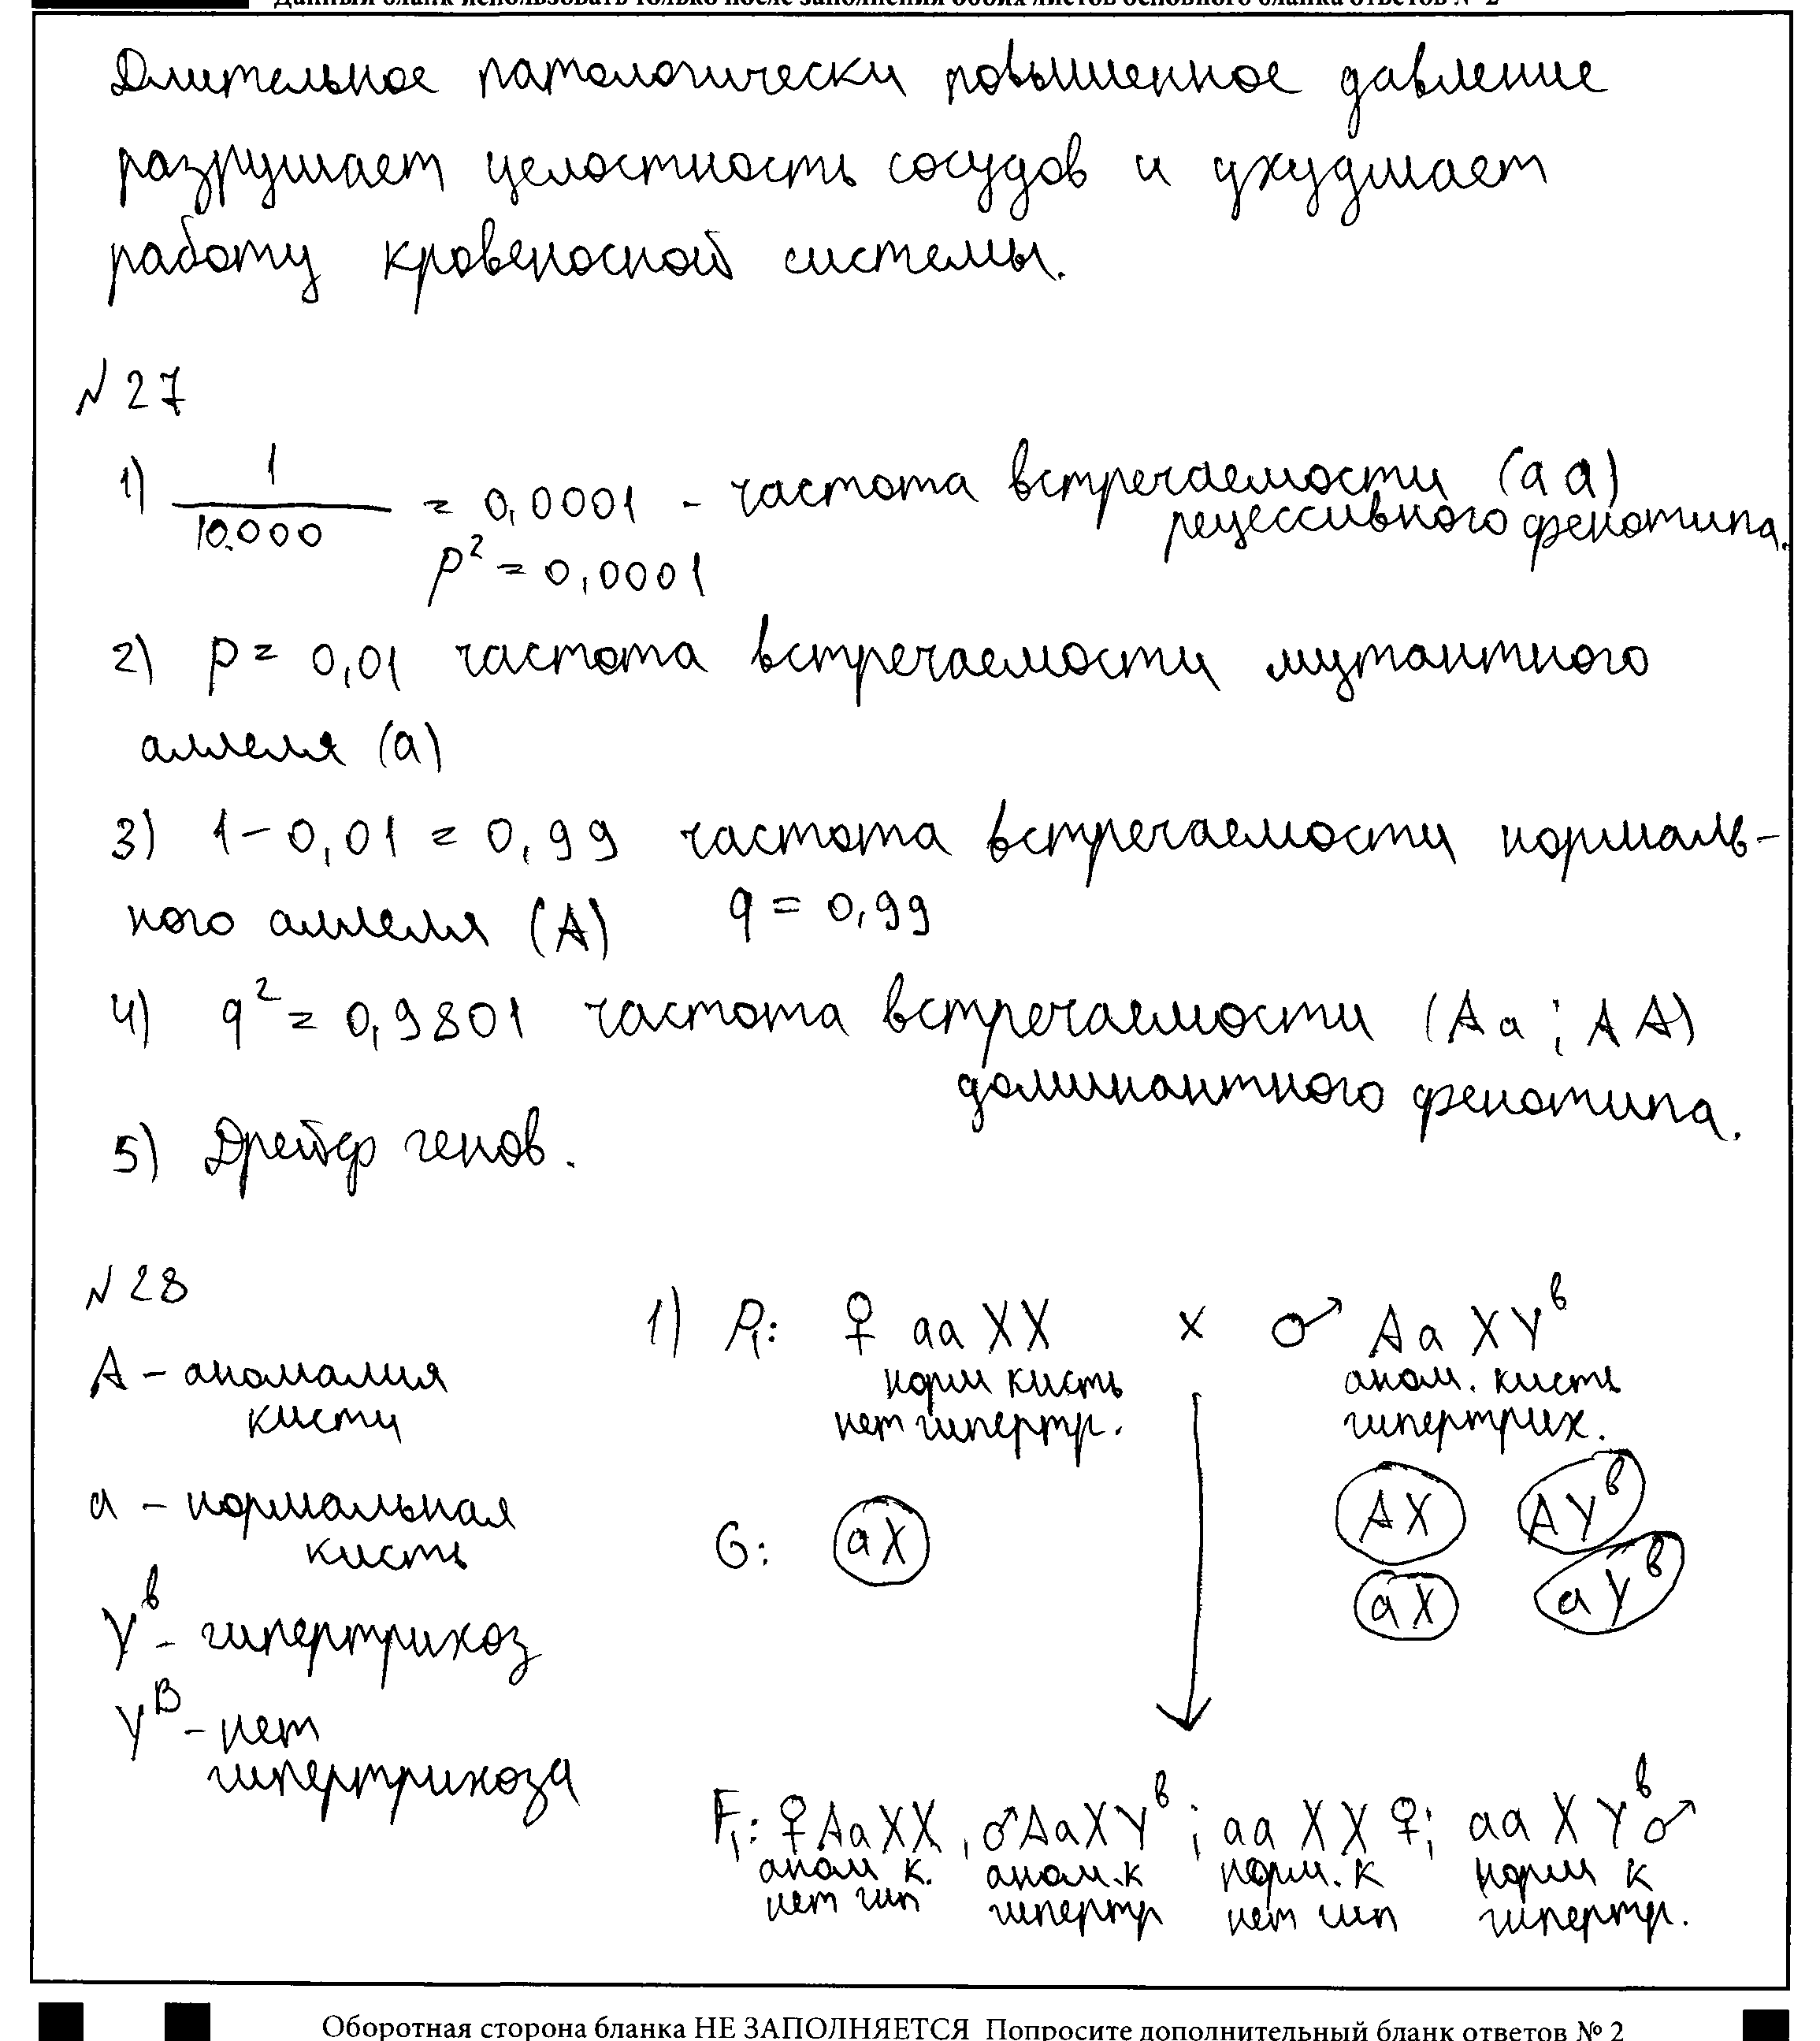 Данный бланк использовать только после заполнения обоих листов основного бланка ответов № 2
Длительное патологически повышенное давление
разрушает целостность сосудов и ухудшает
работу кровеносной системы.
№ 27
1) 1/10.000 = 0,0001 - частота встречаемости (aa)
рецессивного фенотипа.
p² = 0,0001
2) p = 0,01 частота встречаемости мутантного
аллеля (a)
3) 1 - 0,01 = 0,99 частота встречаемости нормаль-
ного аллеля (A) q = 0,99
4) q² = 0,9801 частота встречаемости (Aa; AA)
доминантного фенотипа.
5) Дрейф генов.
№ 28
A - аномалия
кисти
a - нормальная
кисть
Yᵇ - гипертрихоз
Yᴮ - нет
гипертрихоза
1) P₁: ♀ aa XX x ♂ Aa XYᵇ
норм кисть аном. кисть
нет гипертр. гипертрих.
G: aX AX AYᵇ
aX aYᵇ
F₁: ♀AaXX, ♂AaXYᵇ; aa XX ♀; aa XYᵇ♂
аном к. аном.к норм. к норм к
нет гип гипертр нет гип гипертр.
Оборотная сторона бланка НЕ ЗАПОЛНЯЕТСЯ Попросите дополнительный бланк ответов № 2